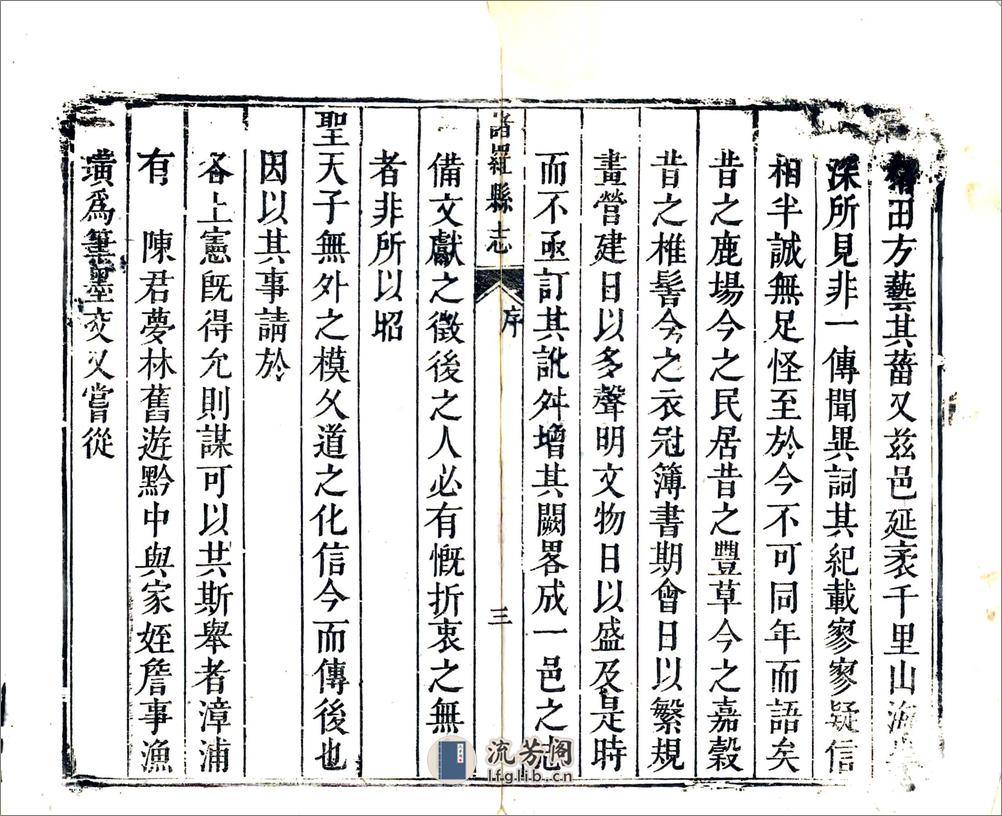 田方藝其菑又茲邑延袤千里山海
深所見非一傳聞異詞其紀載寥寥疑信
相半誠無足怪至於今不可同年而語矣
昔之鹿場今之民居昔之豐草今之嘉穀
昔之椎髻今之衣冠簿書期會日以繁規
畫營建日以多聲明文物日以盛及是時
而不亟訂其訛舛增其闕畧成一邑之志
諸羅縣志 序 三
備文獻之徵後之人必有慨折衷之無
者非所以昭
聖天子無外之模久道之化信今而傳後也
因以其事請於
各上憲旣得允則謀可以共斯舉者漳浦
有 陳君夢林舊遊黔中與家姪詹事漁
璜爲筆墨交又嘗從
流芳阁
lfglib.cn